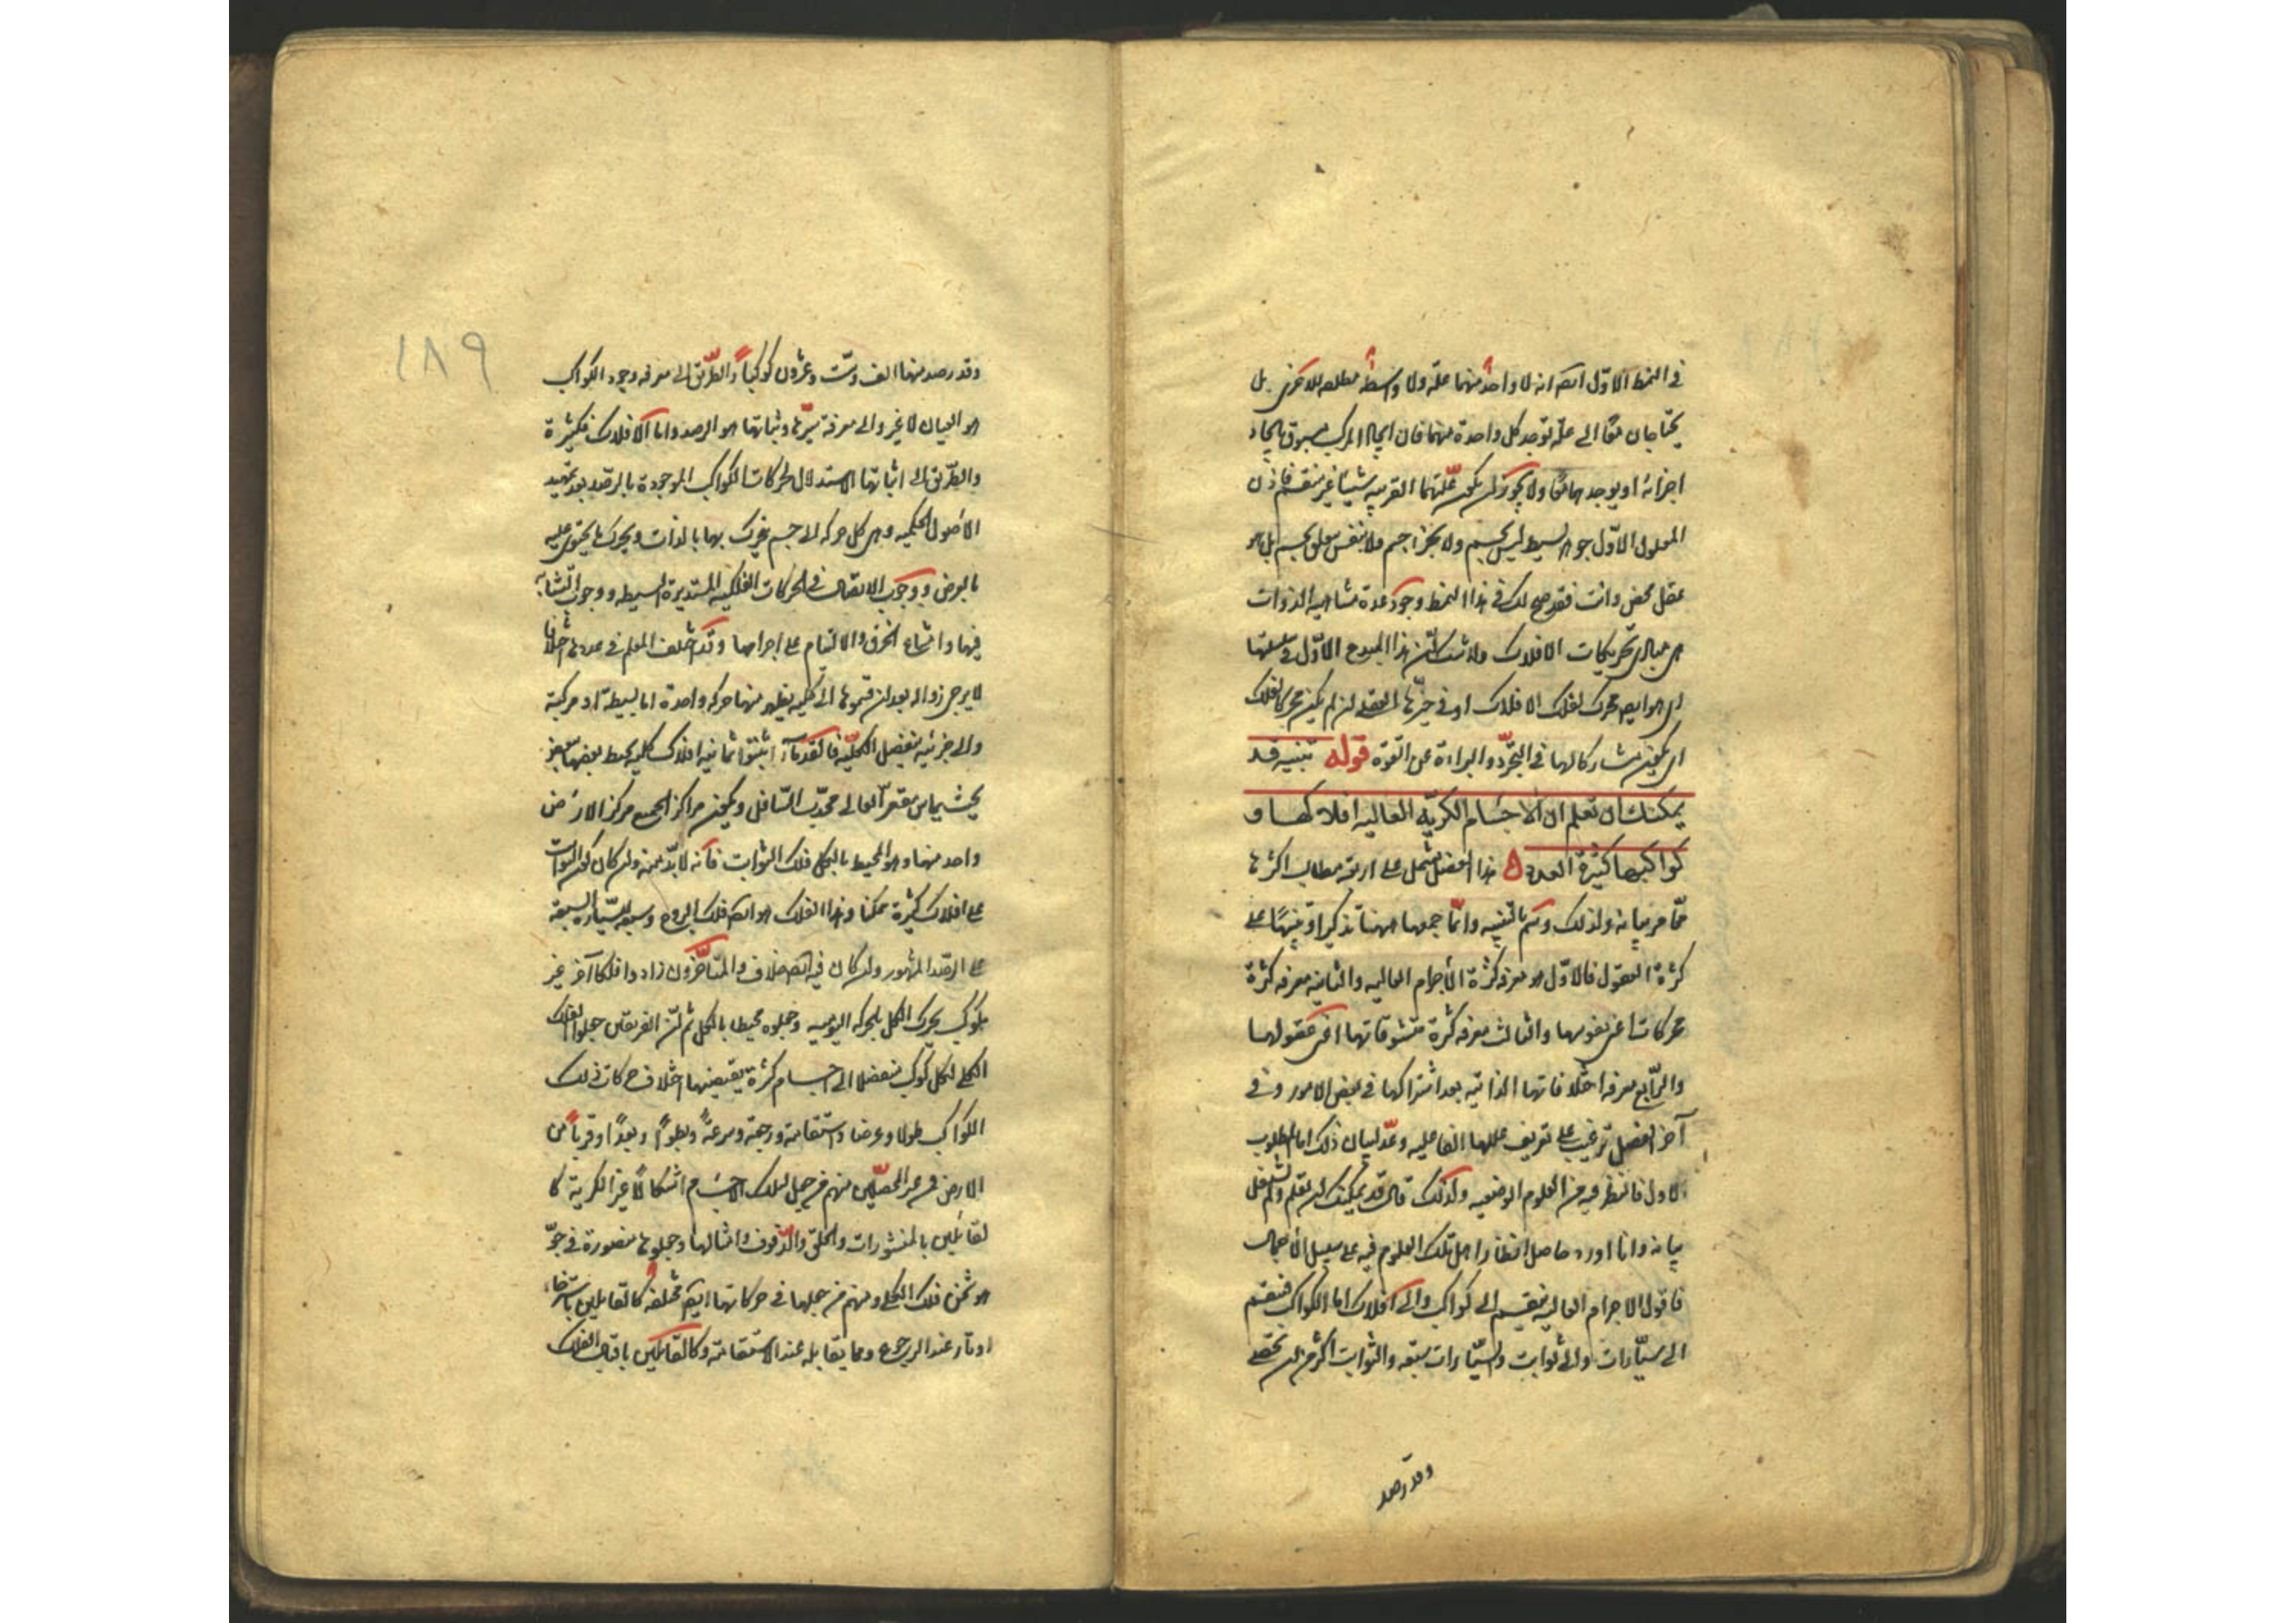 في النمط الاول ايضا انه لا واحد منهما علة ولا واسطة مطلقة للآخر بل
يحتاجان معا الى علة توجد كل واحدة منهما فان ايجاد المركب مسبوق بايجاد
اجزائه او يوجدهما معا ولا يجوز ان يكون علتهما القريبة شيئا غير منقسم فاذن
المعلول الاول جوهر بسيط ليس بجسم ولا بجزء جسم ولا بنفس متعلق بجسم بل هو
عقل محض وانت فقد صح لك في هذا النمط وجود عدة متباينة الذوات
هي مبادي تحريكات الافلاك ولا شك ان هذا المبدع الاول في سلسلتها
اي هو ايضا محرك لفلك الافلاك او في حيزها العقلي ان لم يكن محركا لفلك
اي يكون مشاركا لها في التجرد والبراءة عن القوة قوله تنبيه قد
يمكنك ان تعلم ان الاجسام الكرية العالية افلاكها و
كواكبها كثيرة العدد ه هذا الفصل يشتمل على اربعة مطالب اكثرها
مما مر بيانه ولذلك وسم بالتنبيه وانما جمعها ههنا تذكيرا وتنبيها على
كثرة العقول فالاول هو معرفة كثرة الاجرام العالية والثانية معرفة كثرة
محركات اعني نفوسها والثالث معرفة كثرة متشوقاتها اعني عقولها
والرابع معرفة اختلافاتها الذاتية بعد اشتراكها في بعض الامور وفي
آخر الفصل ترغيب على تعريف عللها الفاعلية وعد لبيان ذلك اما المطلوب
الاول فالنظر فيه من العلوم الوضعية ولذلك قال قد يمكنك ان تعلم ولم يشتغل
ببيانه وانا اورد حاصل انظار اهل تلك العلوم فيه على سبيل الاجمال
فاقول الاجرام العالية تنقسم الى كواكب والى افلاك اما الكواكب فتنقسم
الى سيارات والى ثوابت والسيارات سبعة والثوابت اكثر من ان تحصى
وقد رصد
١٨٩
وقد رصد منها الف وست وعشرون كوكبا والطريق الى معرفة وجود الكواكب
هو العيان لا غير والى معرفة سيرها وثباتها هو الرصد واما الافلاك فكثيرة
والطريق الى اثباتها الاستدلال بحركات الكواكب الموجودة بالرصد بعد تمهيد
الاصول الحكمية وهي كل حركة لا جسم يتحرك بها بالذات ويحرك ما يحتوي عليه
بالعرض ووجوب الاتصال في الحركات الفلكية المستديرة البسيطة ووجوب التشابه
فيها وامتناع الخرق والالتيام على اجرامها وقد اختلف اهل العلم في عددها اختلافا
لا يرجى زواله بعد ان قسموها الى كلية يظهر منها حركة واحدة اما بسيطة او مركبة
والى جزئية ينفصل الكلية فالقدماء اثبتوا ثمانية افلاك كلية يحيط بعضها ببعض
بحيث يماس مقعر العالي محدب السافل ويكون مراكز الجميع مركز الارض
واحد منها وهو المحيط بالكل فلك الثوابت فانه لا بد منه وان كان كون الثوابت
على افلاك كثيرة ممكنا وهذا الفلك هو ايضا فلك البروج وسبعة للسيارة السبعة
على الرصد المشهور وان كان فيه ايضا خلاف والمتأخرون زادوا فلكا آخر غير
مكوكب يحرك الكل بالحركة اليومية وجعلوه محيطا بالكل ثم ان الفريقين جعلوا الفلك
الكلي لكل كوكب منفصلا الى اجسام كثيرة يقتضيها اختلاف حركات ذلك
الكواكب طولا وعرضا واستقامة ورجعة وسرعة وبطوءا وبعدا وقربا من
الارض فمن غير المحصلين منهم من جعل لتلك الاجسام اشكالا غير الكرية كا
لقائلين بالمنشورات والحلق والدفوف وامثالها وجعلوها منضودة في جو
هو ثخن فلك الكلي ومنهم من جعلها في حركاتها ايضا مختلفة كالقائلين باسترخاء
اوتار عند الرجوع وما يقابله عند الاستقامة وكالقائلين باقبال الفلك